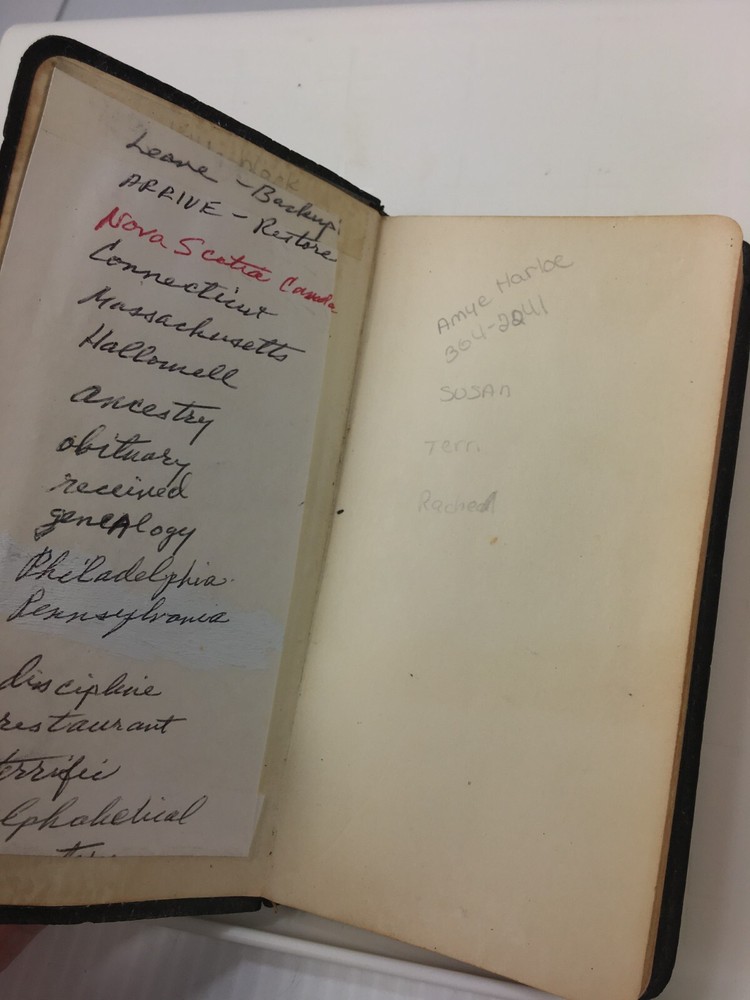 Work
Leave - Backup:
ARRIVE - Restore
Nova Scotia Canada
Connecticut
Massachusetts
Hallowell
ancestry
obituary
received
geneAlogy
Philadelphia
Pennsylvania
discipline
restaurant
terrific
lphabetical
Amye Harloe
364-2241
SUSAn
Terri
Rachel